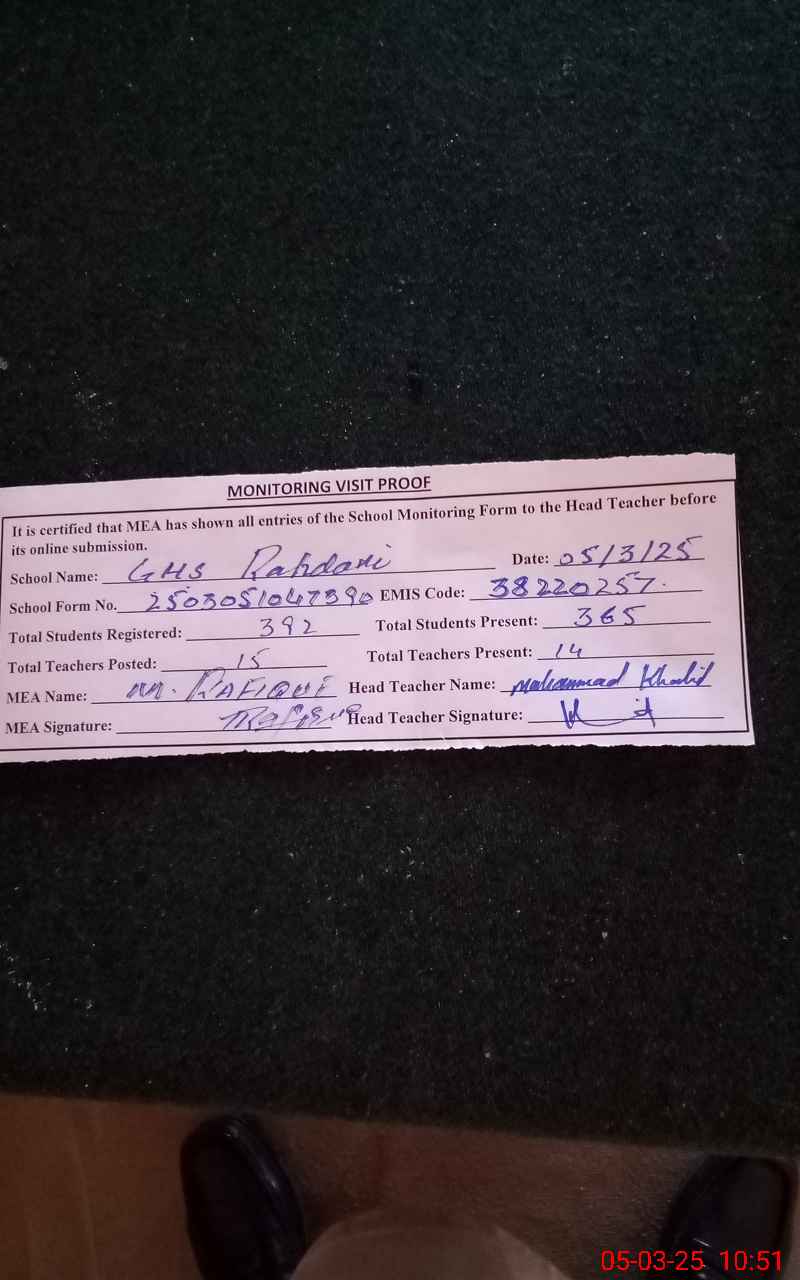 MONITORING VISIT PROOF
It is certified that MEA has shown all entries of the School Monitoring Form to the Head Teacher before
its online submission.
School Name: GHS Rahdari Date: 05/3/25
School Form No. 2503051047390 EMIS Code: 38220257.
Total Students Registered: 392 Total Students Present: 365
Total Teachers Posted: 15 Total Teachers Present: 14
MEA Name: M. RAFIQUE Head Teacher Name: Muhammad Khalid
MEA Signature: Head Teacher Signature:
05-03-25 10:51